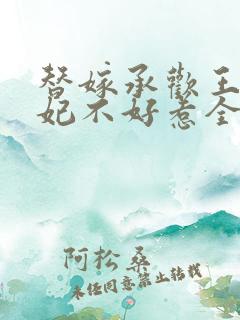 替嫁承歡王
妃不好惹全
阿松桑
未经同意禁止转载